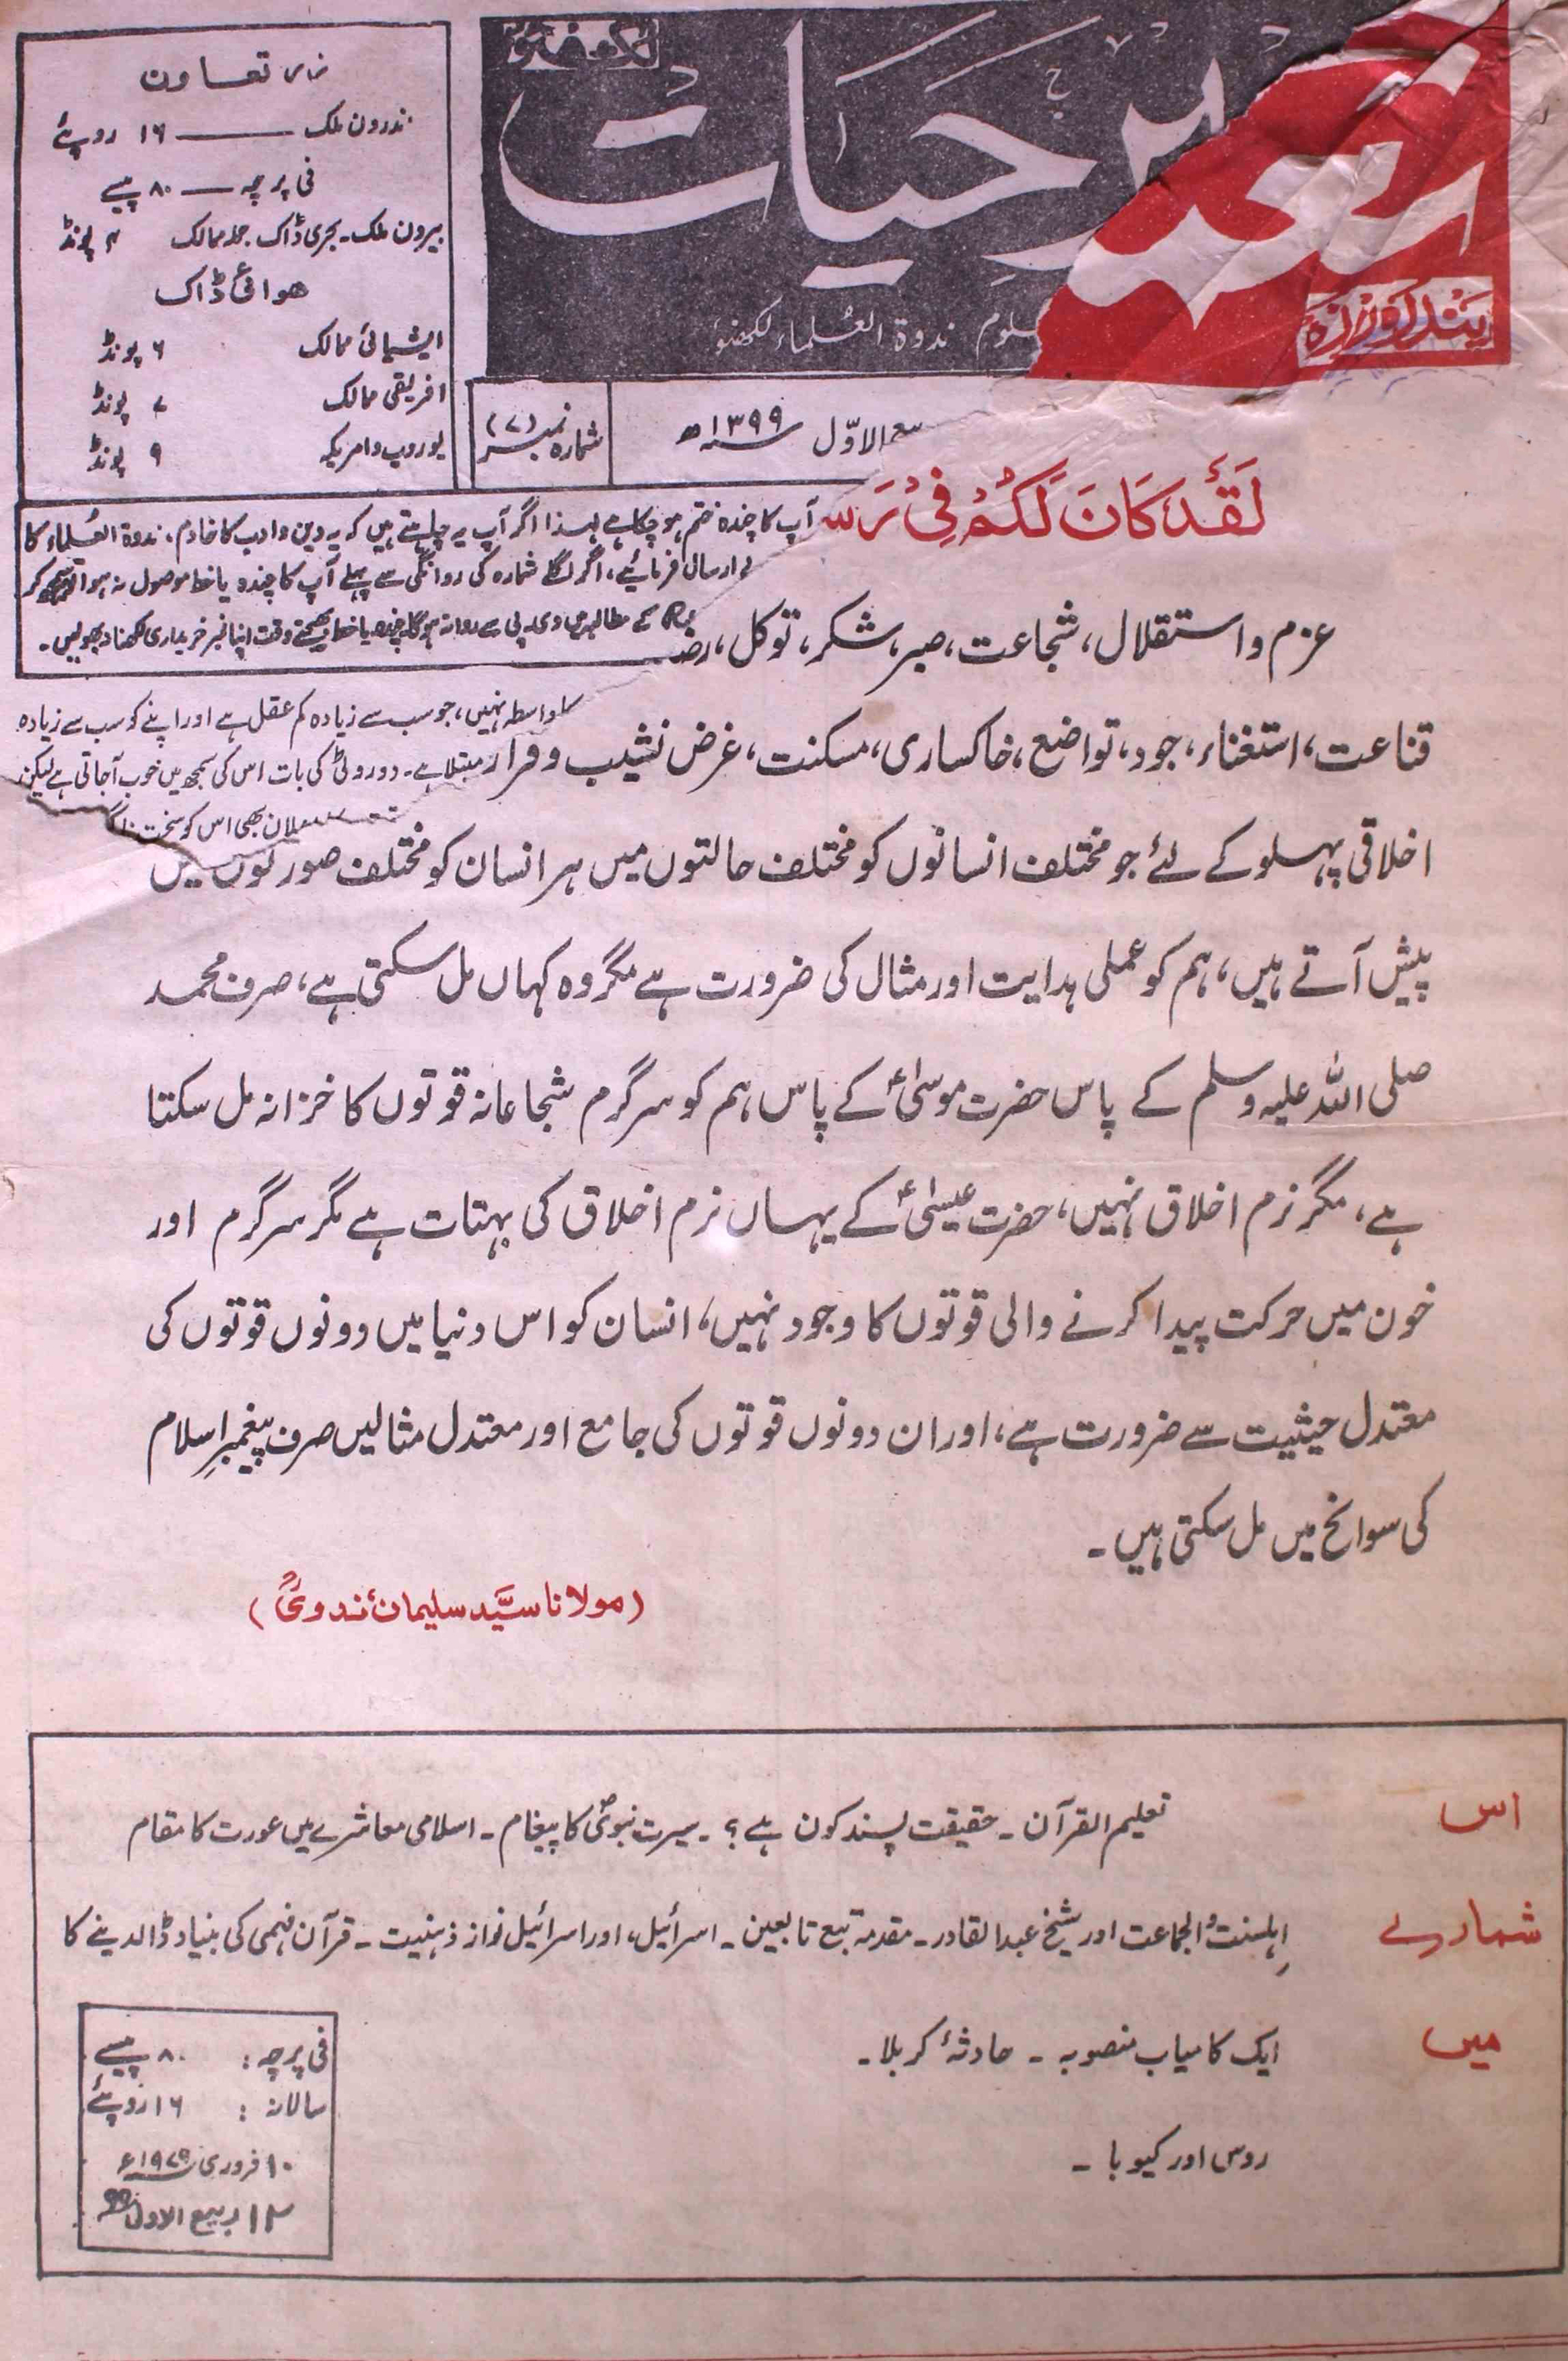 لکھنؤ
تعمیر حیات
پندرہ روزہ
لوم ندوۃ العلماء لکھنؤ
زر تعاون
ندرون ملک ـــــ ۱۶ روپئے
فی پرچہ ـــــ ۸۰ پیسے
بیرون ملک۔ بحری ڈاک جملہ ممالک ۴ پونڈ
ھوائی ڈاک
ایشیائی ممالک ۶ پونڈ
افریقی ممالک ۷ پونڈ
یوروپ و امریکہ ۹ پونڈ
شمارہ نمبر (۷)
الاوّل ۱۳۹۹ھ
آپ کا چندہ ختم ہو چکا ہے لہذا اگر آپ یہ چاہتے ہیں کہ یہ دین و ادب کا خادم، ندوۃ العُلماء کا
ارسال فرمائیے، اگر اگلے شمارہ کی روانگی سے پہلے آپ کا چندہ یا خط موصول نہ ہوا تو یہ سمجھ کر
کے مطالبہ میں وی پی سے روانہ ہوگا چندہ یا خط بھیجتے وقت اپنا نمبر خریداری لکھنا نہ بھولیں۔
واسطہ نہیں، جو سب سے زیادہ کم عقل ہے اور اپنے کو سب سے زیادہ
مبتلا ہے۔ دو روٹی کی بات اس کی سمجھ میں خوب آ جاتی ہے لیکن
بھی اس کو سخت
لَقَدْ کَانَ لَکُمْ فِیْ رَ
عزم و استقلال، شجاعت، صبر، شکر، توکل، رض
قناعت، استغناء، جود، تواضع، خاکساری، مسکنت، غرض نشیب و فراز
اخلاقی پہلو کے لئے جو مختلف انسانوں کو مختلف حالتوں میں ہر انسان کو مختلف صورتوں میں
پیش آتے ہیں، ہم کو عملی ہدایت اور مثال کی ضرورت ہے مگر وہ کہاں مل سکتی ہے، صرف محمد
صلی اللہ علیہ وسلم کے پاس حضرت موسیٰؑ کے پاس ہم کو سرگرم شجاعانہ قوتوں کا خزانہ مل سکتا
ہے، مگر نرم اخلاق نہیں، حضرت عیسیٰؑ کے یہاں نرم اخلاق کی بہتات ہے مگر سرگرم اور
خون میں حرکت پیدا کرنے والی قوتوں کا وجود نہیں، انسان کو اس دنیا میں دونوں قوتوں کی
معتدل حیثیت سے ضرورت ہے، اور ان دونوں قوتوں کی جامع اور معتدل مثالیں صرف پیغمبرِ اسلام
کی سوانح میں مل سکتی ہیں۔
(مولانا سیّد سلیمان ندویؒ)
اس
شمارے
میں
تعلیم القرآن ۔ حقیقت پسند کون ہے؟ ۔ سیرت نبویؐ کا پیغام ۔ اسلامی معاشرے میں عورت کا مقام
اہلسنت والجماعت اور شیخ عبدالقادر ۔ مقدمہ تبع تابعین ۔ اسرائیل، اور اسرائیل نواز ذہنیت ۔ قرآن فہمی کی بنیاد ڈالدینے کا
ایک کامیاب منصوبہ ۔ حادثۂ کربلا ۔
روس اور کیوبا ۔
فی پرچہ: ۸۰ پیسے
سالانہ: ۱۶ روپئے
۱۰ فروری ۱۹۷۹ء
۱۲ ربیع الاول ۹۹ھ